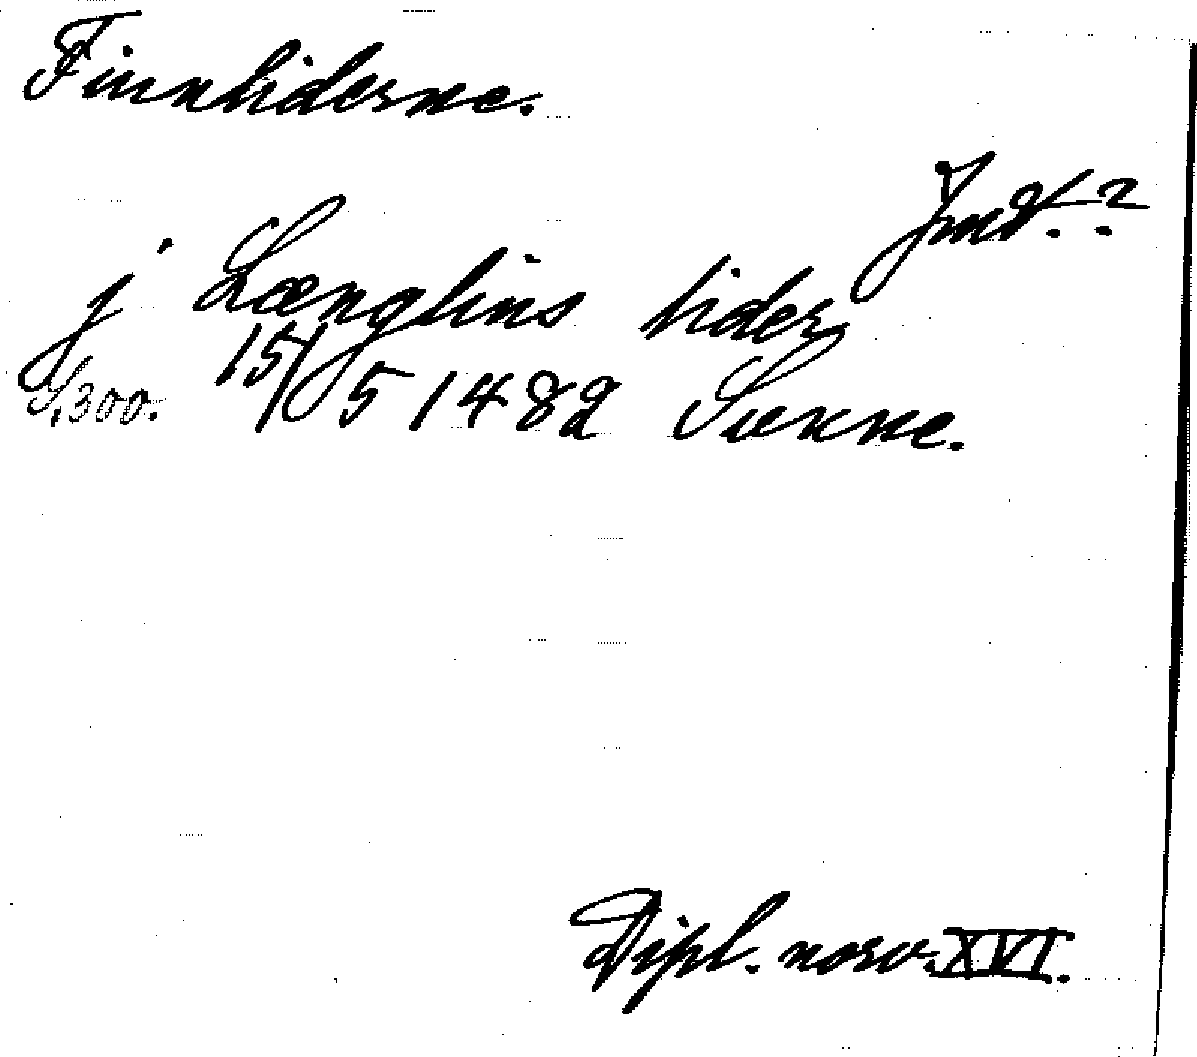 Finnliderne.
Jmt.?
j Længlins lider
S. 300. 15/5 1482 Sunne.
Dipl. norv. XVI.